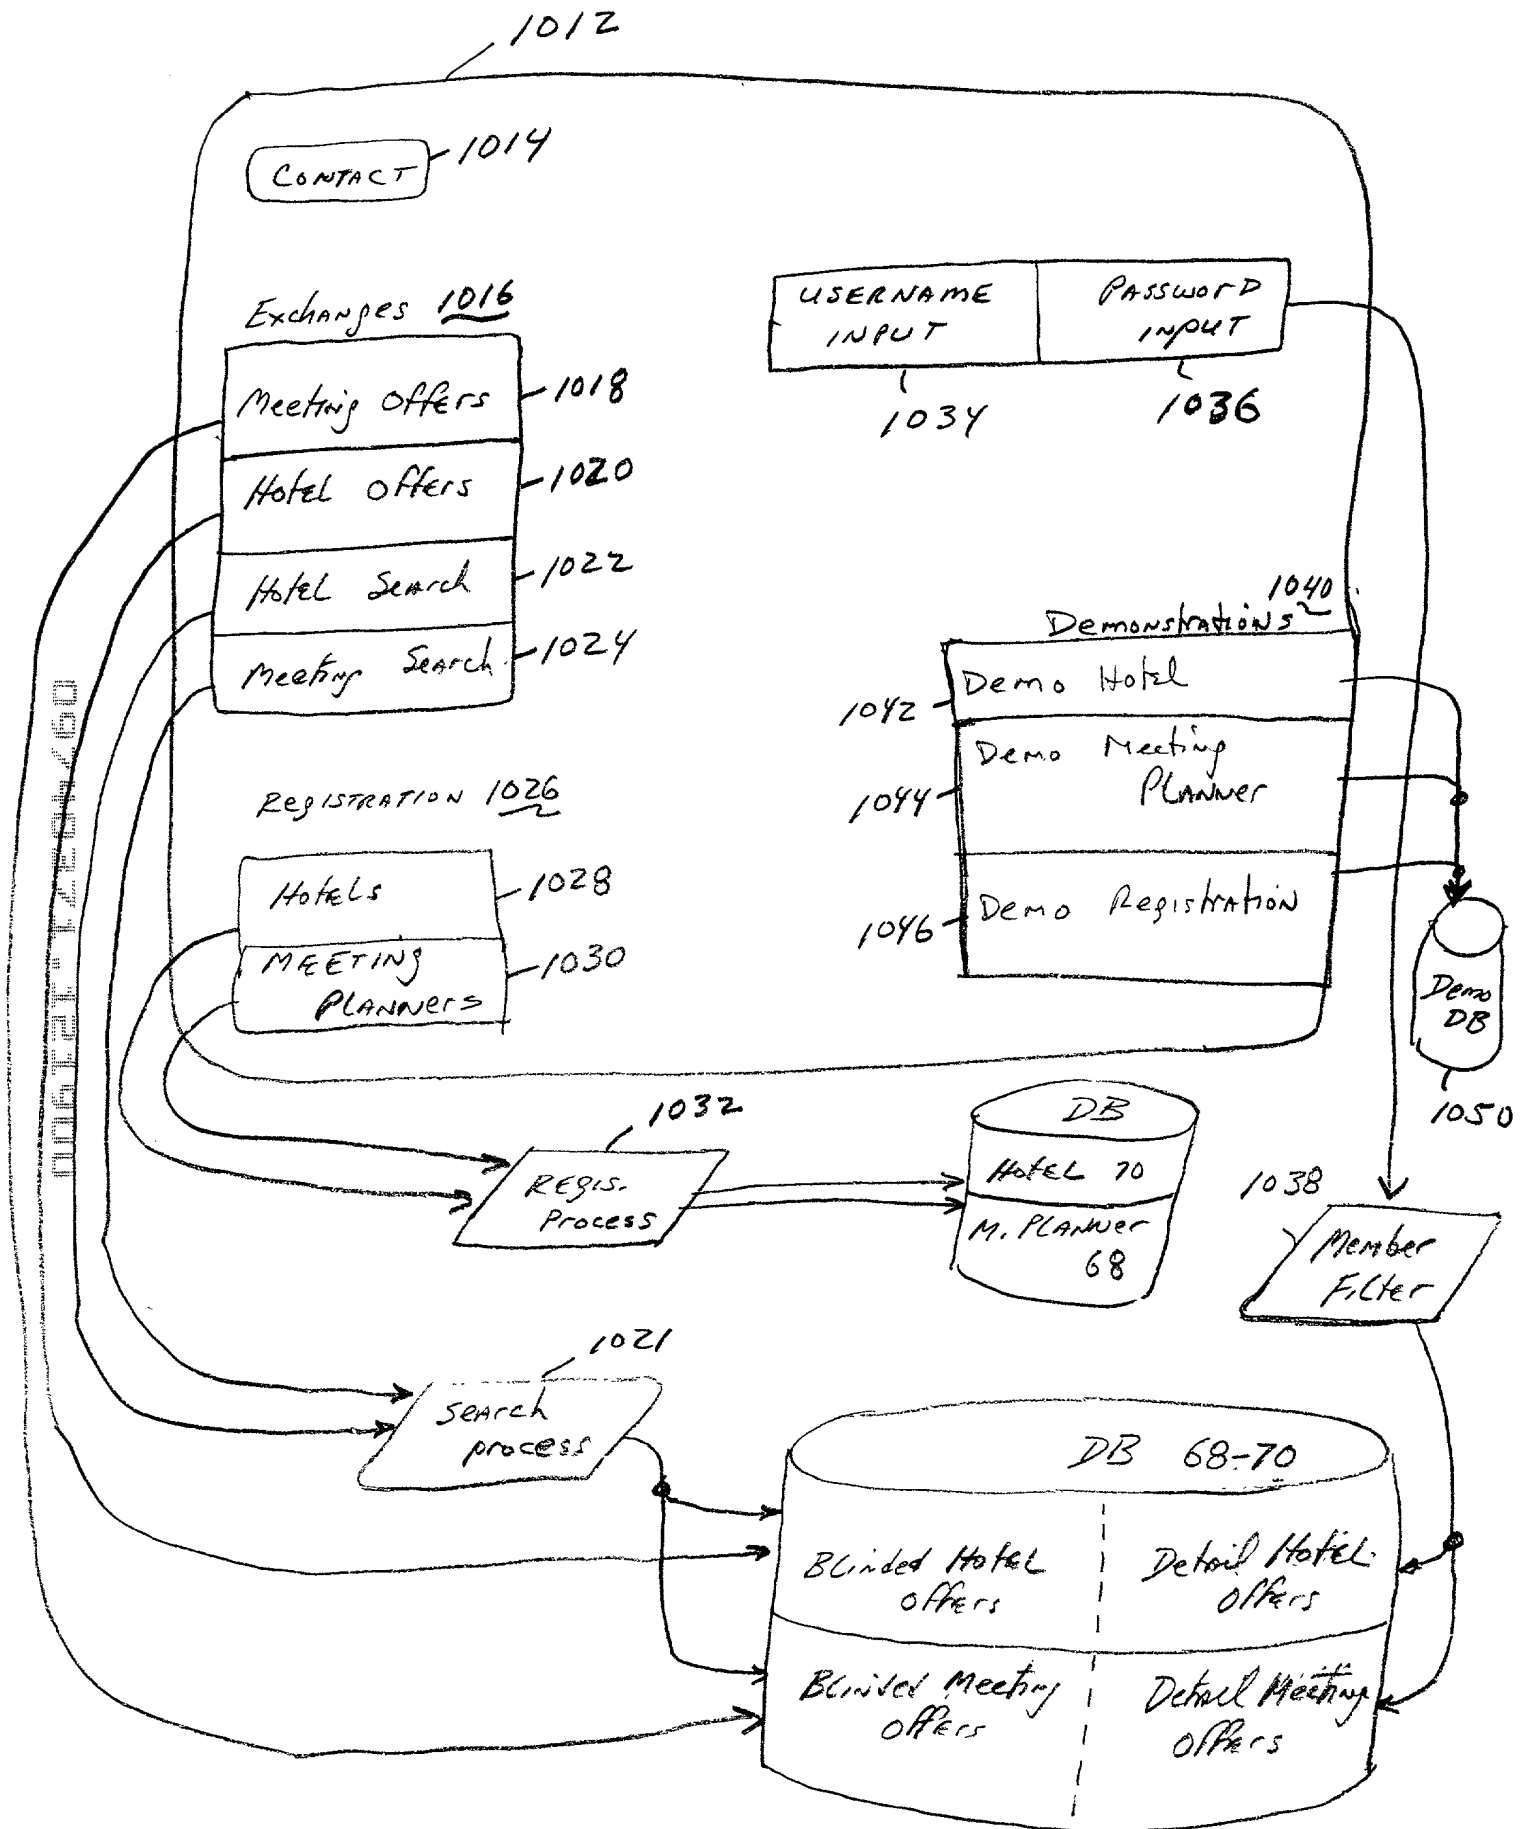 1012
CONTACT
1014
Exchanges 1016
Meeting Offers
1018
Hotel Offers
1020
Hotel Search
1022
Meeting Search
1024
USERNAME
INPUT
1034
PASSWORD
INPUT
1036
1040
Demonstrations
Demo Hotel
1042
Demo Meeting
Planner
1044
Demo Registration
1046
Registration 1026
Hotels
1028
MEETING
PLANNers
1030
Demo
DB
1050
1032
REgis.
Process
DB
Hotel 70
M. PLANNer
68
1038
Member
Filter
1021
Search
process
DB 68-70
Blinded Hotel
Offers
Detail Hotel
Offers
Blinded Meeting
Offers
Detail Meeting
Offers